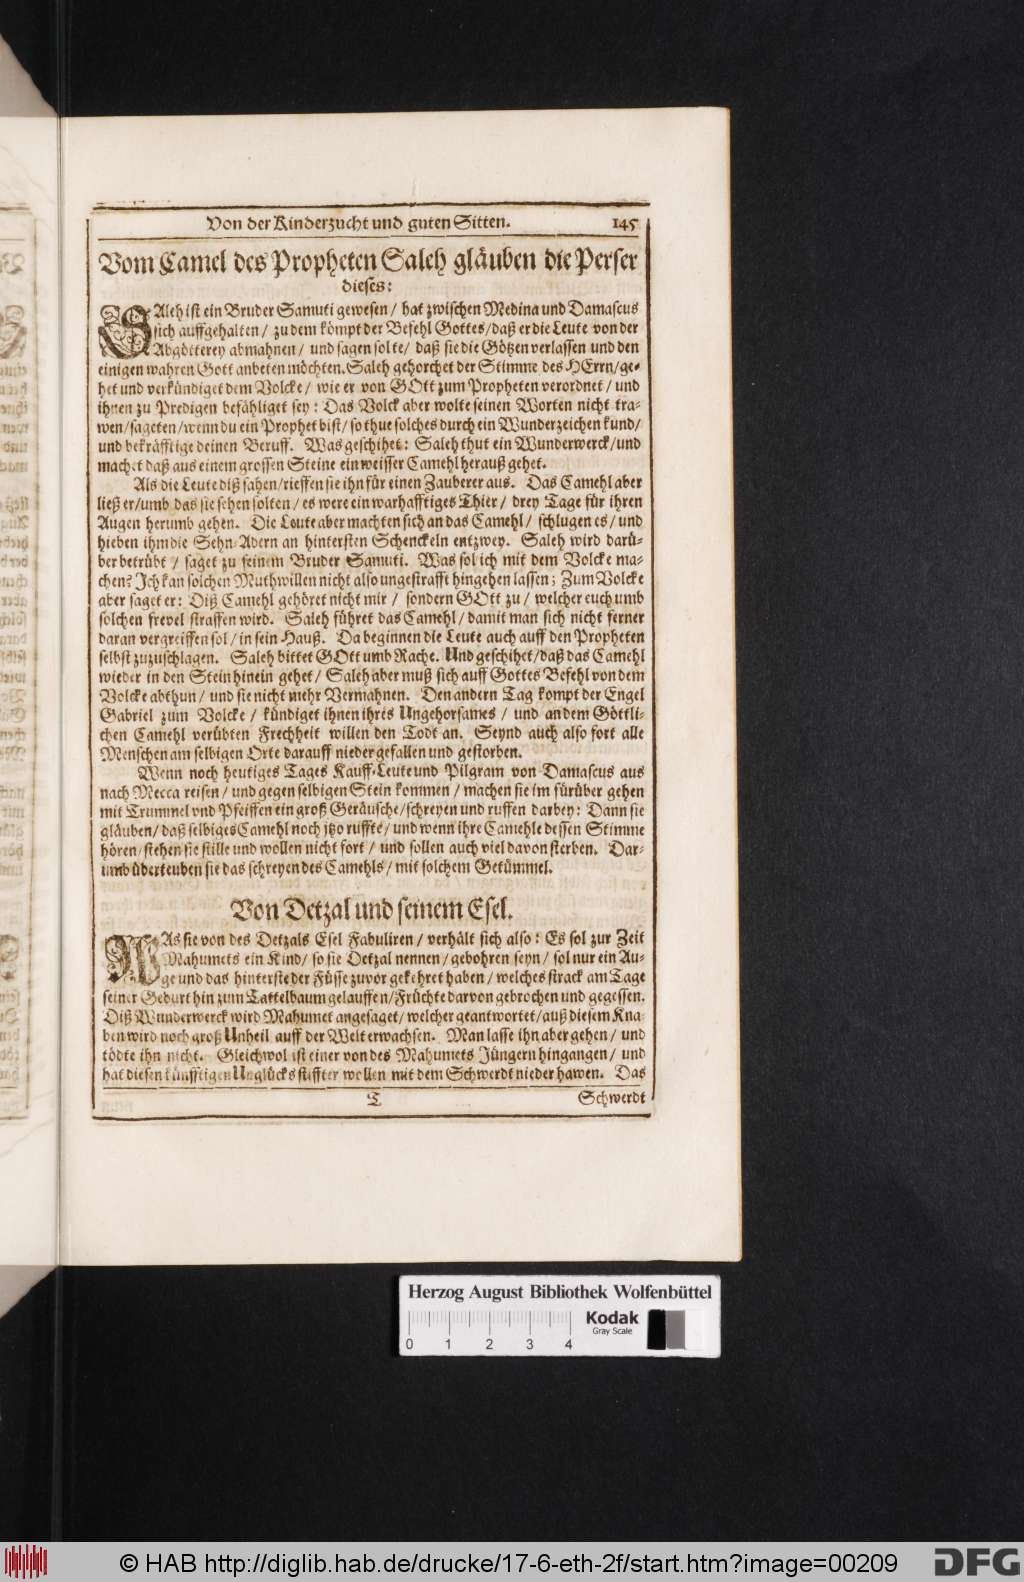 Von der Kinderzucht und guten Sitten. 145
Vom Camel des Propheten Saleh gläuben die Perser
dieses:
SAleh ist ein Bruder Samuti gewesen / hat zwischen Medina und Damascus
sich auffgehalten / zu dem kömpt der Befehl Gottes / daß er die Leute von der
Abgötterey abmahnen / und sagen solte / daß sie die Götzen verlassen und den
einigen wahren Gott anbeten möchten. Saleh gehorchet der Stimme des HErrn / ge-
het und verkündiget dem Volcke / wie er von GOtt zum Propheten verordnet / und
ihnen zu Predigen befähliget sey: Das Volck aber wolte seinen Worten nicht tra-
wen / sageten / wenn du ein Prophet bist / so thue solches durch ein Wunderzeichen kund /
und bekräfftige deinen Beruff. Was geschihet: Saleh thut ein Wunderwerck / und
machet daß aus einem grossen Steine ein weisser Camehl herauß gehet.
Als die Leute diß sahen / rieffen sie ihn für einen Zauberer aus. Das Camehl aber
ließ er / umb das sie sehen solten / es were ein warhafftiges Thier / drey Tage für ihren
Augen herumb gehen. Die Leute aber machten sich an das Camehl / schlugen es / und
hieben ihm die Sehn-Adern an hintersten Schenckeln entzwey. Saleh wird darü-
ber betrübt / saget zu seinem Bruder Samuti. Was sol ich mit dem Volcke ma-
chen? Ich kan solchen Muthwillen nicht also ungestrafft hingehen lassen; Zum Volcke
aber saget er: Diß Camehl gehöret nicht mir / sondern GOtt zu / welcher euch umb
solchen frevel straffen wird. Saleh führet das Camehl / damit man sich nicht ferner
daran vergreiffen sol / in sein Hauß. Da beginnen die Leute auch auff den Propheten
selbst zuzuschlagen. Saleh bittet GOtt umb Rache. Und geschihet / daß das Camehl
wieder in den Stein hinein gehet / Saleh aber muß sich auff Gottes Befehl von dem
Volcke abthun / und sie nicht mehr Vermahnen. Den andern Tag kompt der Engel
Gabriel zum Volcke / kündiget ihnen ihres Ungehorsames / und an dem Göttli-
chen Camehl verübten Frechheit willen den Todt an. Seynd auch also fort alle
Menschen am selbigen Orte darauff nieder gefallen und gestorben.
Wenn noch heutiges Tages Kauff-Leute und Pilgram von Damascus aus
nach Mecca reisen / und gegen selbigen Stein kommen / machen sie im fürüber gehen
mit Trummel vnd Pfeiffen ein groß Geräusche / schreyen und ruffen darbey: Dann sie
gläuben / daß selbiges Camehl noch jtzo ruffte / und wenn ihre Camehle dessen Stimme
hören / stehen sie stille und wollen nicht fort / und sollen auch viel davon sterben. Dar-
umb überteuben sie das schreyen des Camehls / mit solchem Getümmel.
Von Detzal und seinem Esel.
WAs sie von des Detzals Esel Fabuliren / verhält sich also: Es sol zur Zeit
Mahumets ein Kind / so sie Detzal nennen / gebohren seyn / sol nur ein Au-
ge und das hinterste der Füsse zuvor gekehret haben / welches strack am Tage
seiner Geburt hin zum Tattelbaum gelauffen / Früchte darvon gebrochen und gegessen.
Diß Wunderwerck wird Mahumet angesaget / welcher geantwortet / auß diesem Kna-
ben wird noch groß Unheil auff der Welt erwachsen. Man lasse ihn aber gehen / und
tödte ihn nicht. Gleichwol ist einer von des Mahumets Jüngern hingangen / und
hat diesen künfftigen Unglücks stiffter wollen mit dem Schwerdt nieder hawen. Das
T Schwerdt
Herzog August Bibliothek Wolfenbüttel
Kodak
Gray Scale
0 1 2 3 4
© HAB http://diglib.hab.de/drucke/17-6-eth-2f/start.htm?image=00209
DFG